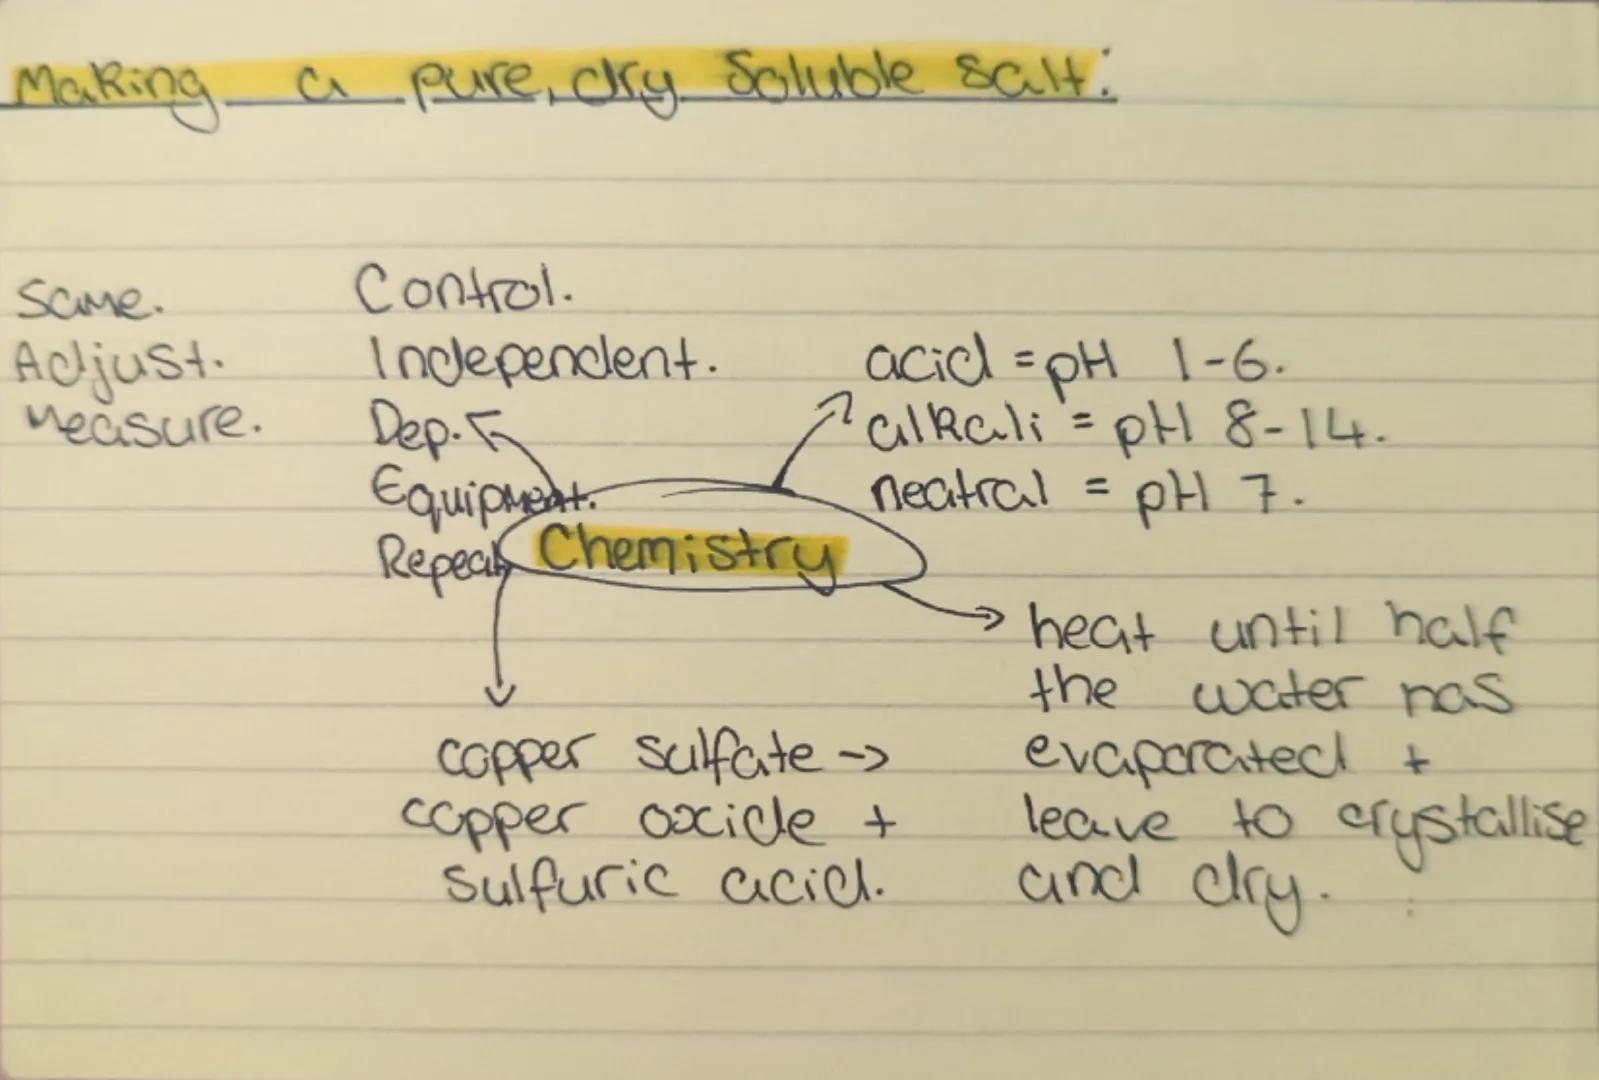 Making a pure, dry Soluble salt:
Same. Control.
Adjust. Independent.
Measure. Dep.
Equipment.
Repeat
acid = pH 1-6.
alkali = pH 8-14.
neutral = pH 7.
Chemistry
copper sulfate ->
copper oxide +
sulfuric acid.
heat until half
the water has
evaporated +
leave to crystallise
and dry.